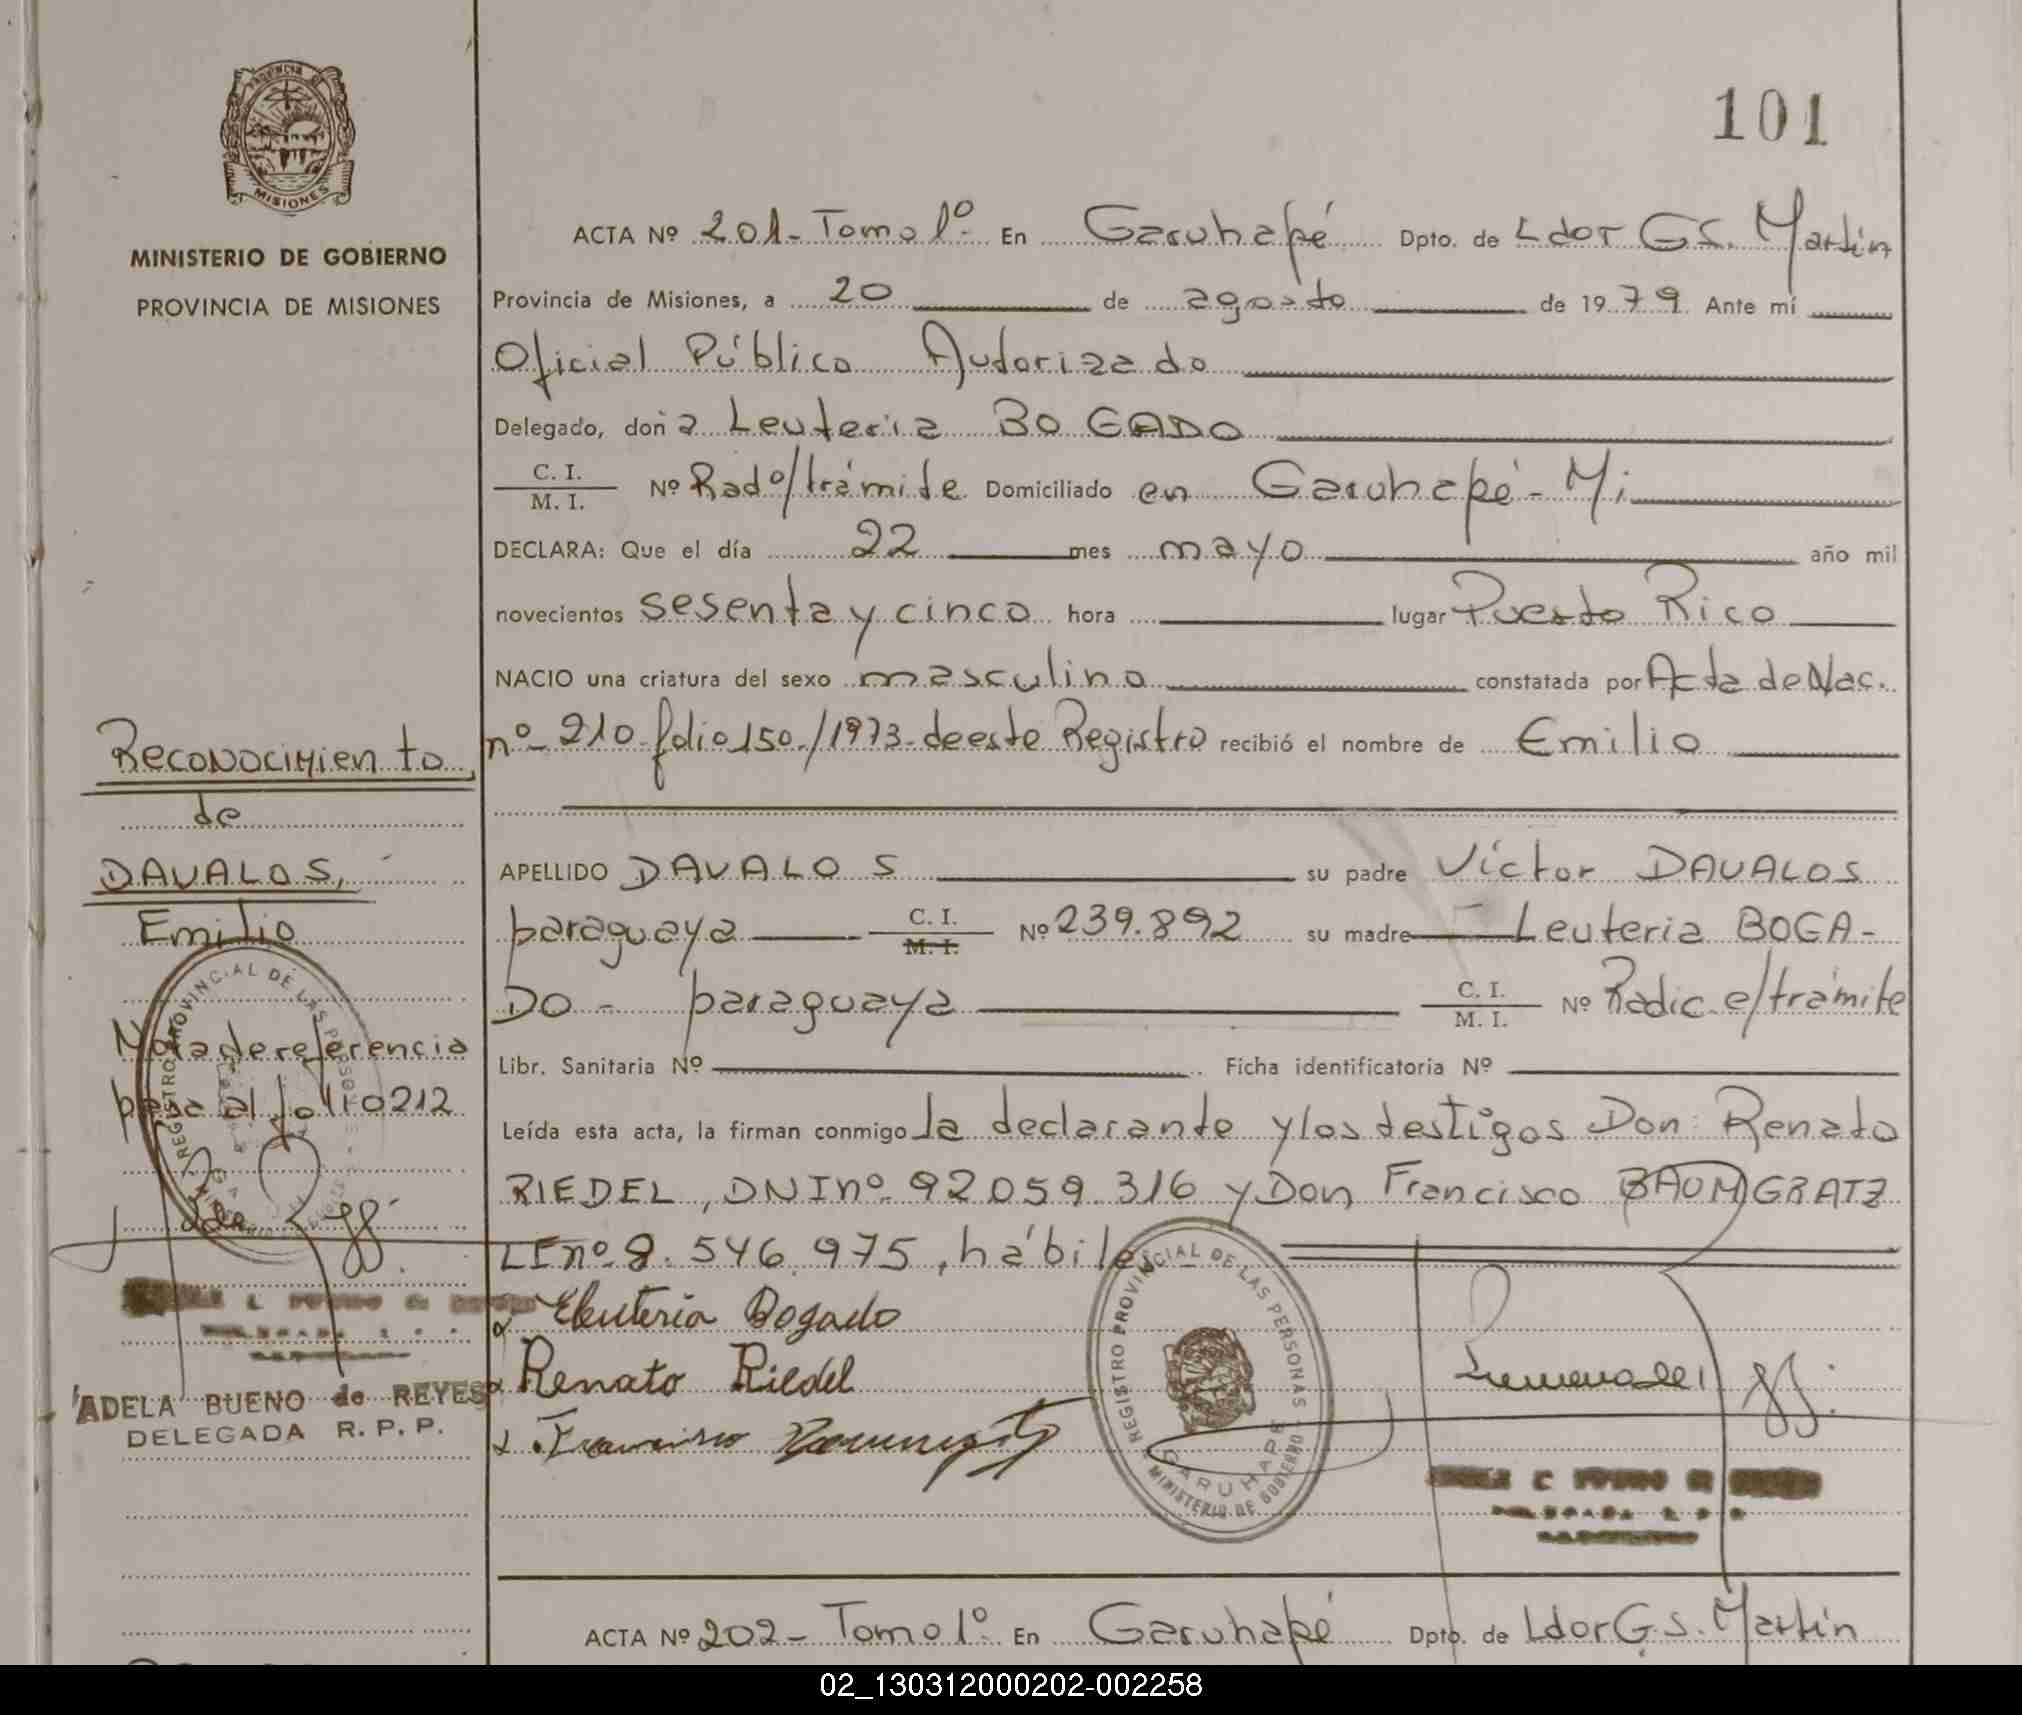 101
PROVINCIA DE
MISIONES
MINISTERIO DE GOBIERNO
PROVINCIA DE MISIONES
ACTA Nº 201- Tomo 1º- En Garuhapé Dpto. de Ldor GS. Martín
Provincia de Misiones, a 20 de agosto de 1979. Ante mí
Oficial Público Autorizado
Delegado, doña Leuteria BOGADO
C. I. / M. I. Nº Radº/trámite. Domiciliado en Garuhapé- Mi
DECLARA: Que el día 22 mes mayo año mil
novecientos sesenta y cinco hora lugar Puerto Rico
NACIO una criatura del sexo masculino constatada por Acta de Nac.
nº- 210- folio 150./1973- de este Registro recibió el nombre de Emilio
APELLIDO DAVALOS su padre Víctor DAVALOS
paraguaya C. I. / M. I. Nº 239.892 su madre Leuteria BOGA-
DO - paraguaya C. I. / M. I. Nº Radic. e/trámite
Libr. Sanitaria Nº Ficha identificatoria Nº
Leída esta acta, la firman conmigo la declarante y los testigos Don: Renato
RIEDEL, DNI nº 92.059.316 y Don Francisco BAUMGRATZ
LE nº 8.546.975, hábiles
Eleuteria Bogado
Renato Riedel
Francisco
REGISTRO PROVINCIAL DE LAS PERSONAS
GARUHAPE
MINISTERIO DE GOBIERNO
Reconocimiento
de
DAVALOS,
Emilio
REGISTRO PROVINCIAL DE LAS PERSONAS
Nota de referencia
pasa al folio 212
ADELA BUENO de REYES
DELEGADA R. P. P.
ACTA Nº 202- Tomo 1º- En Garuhapé Dpto. de Ldor G.S. Martín
02_130312000202-002258